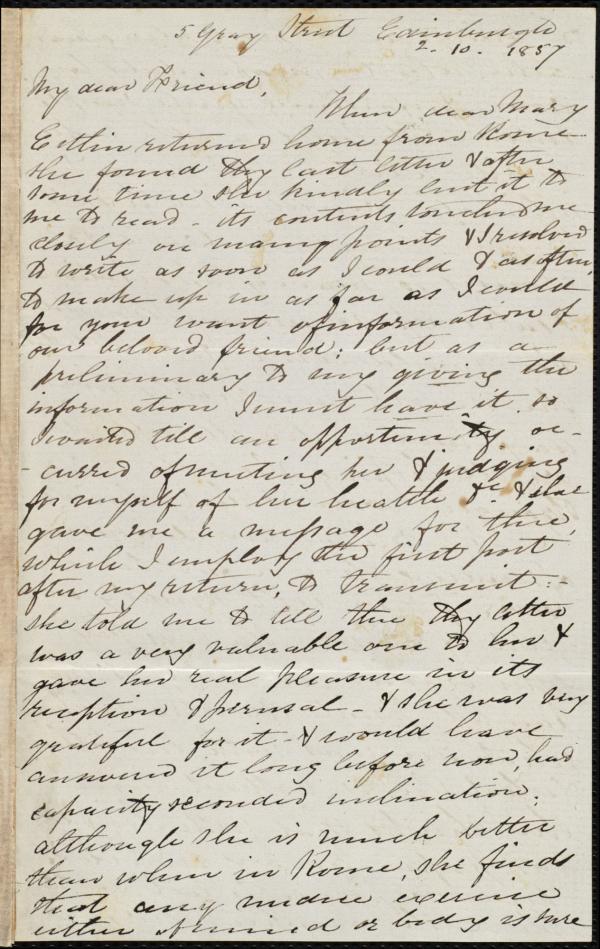 5 Gray Street Edinburgh
2. 10. 1857
My dear Friend,
When dear Mary
Estlin returned home from Rome
she found thy last letter & after
some time she kindly lent it to
me to read - its contents touched me
closely on many points & I resolved
to write as soon as I could & as often,
to make up in as far as I could
for your want of information of
our beloved friend: but as a
preliminary to my giving the
information I must have it. so
I waited till an opportunity oc-
-curred of meeting her & judging
for myself of her health &c & she
gave me a message for thee,
which I employ the first post
after my return, to transmit:-
she told me to tell thee thy letter
was a very valuable one to her &
gave her real pleasure in its
reception & perusal - & she was very
grateful for it - & would have
answered it long before now, had
capacity seconded inclination.
although she is much better
than when in Rome, she finds
that any undue exercise
either of mind or body is sure